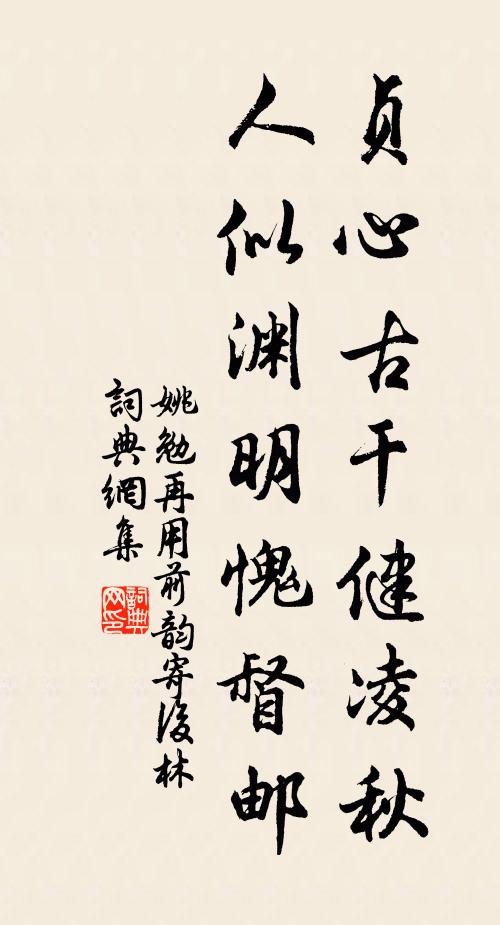 貞心古干健凌秋
人似渊明愧督邮
姚勉再用前韵寄後林
詞典網集
詞典网印